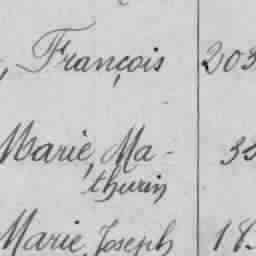 , François 203
Marie, Ma-
thurin 35
Marie Joseph 18